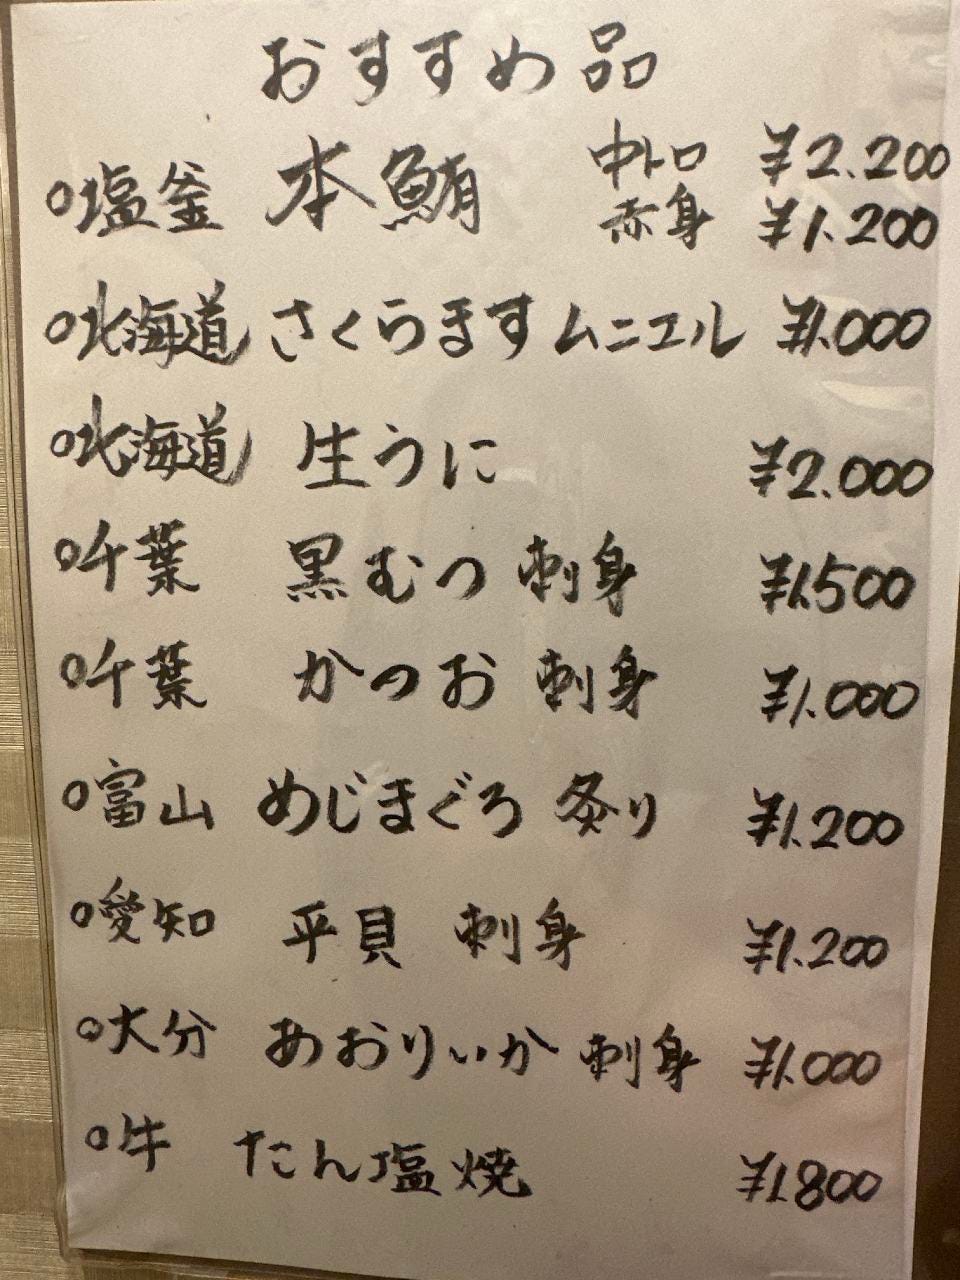 おすすめ品
○塩釜 本鮪 中トロ ¥2.200
赤身 ¥1.200
○北海道 さくらます ムニエル ¥1.000
○北海道 生うに ¥2.000
○千葉 黒むつ 刺身 ¥1.500
○千葉 かつお 刺身 ¥1.000
○富山 めじまぐろ 炙り ¥1.200
○愛知 平貝 刺身 ¥1.200
○大分 あおりいか 刺身 ¥1.000
○牛 たん塩焼 ¥1.800